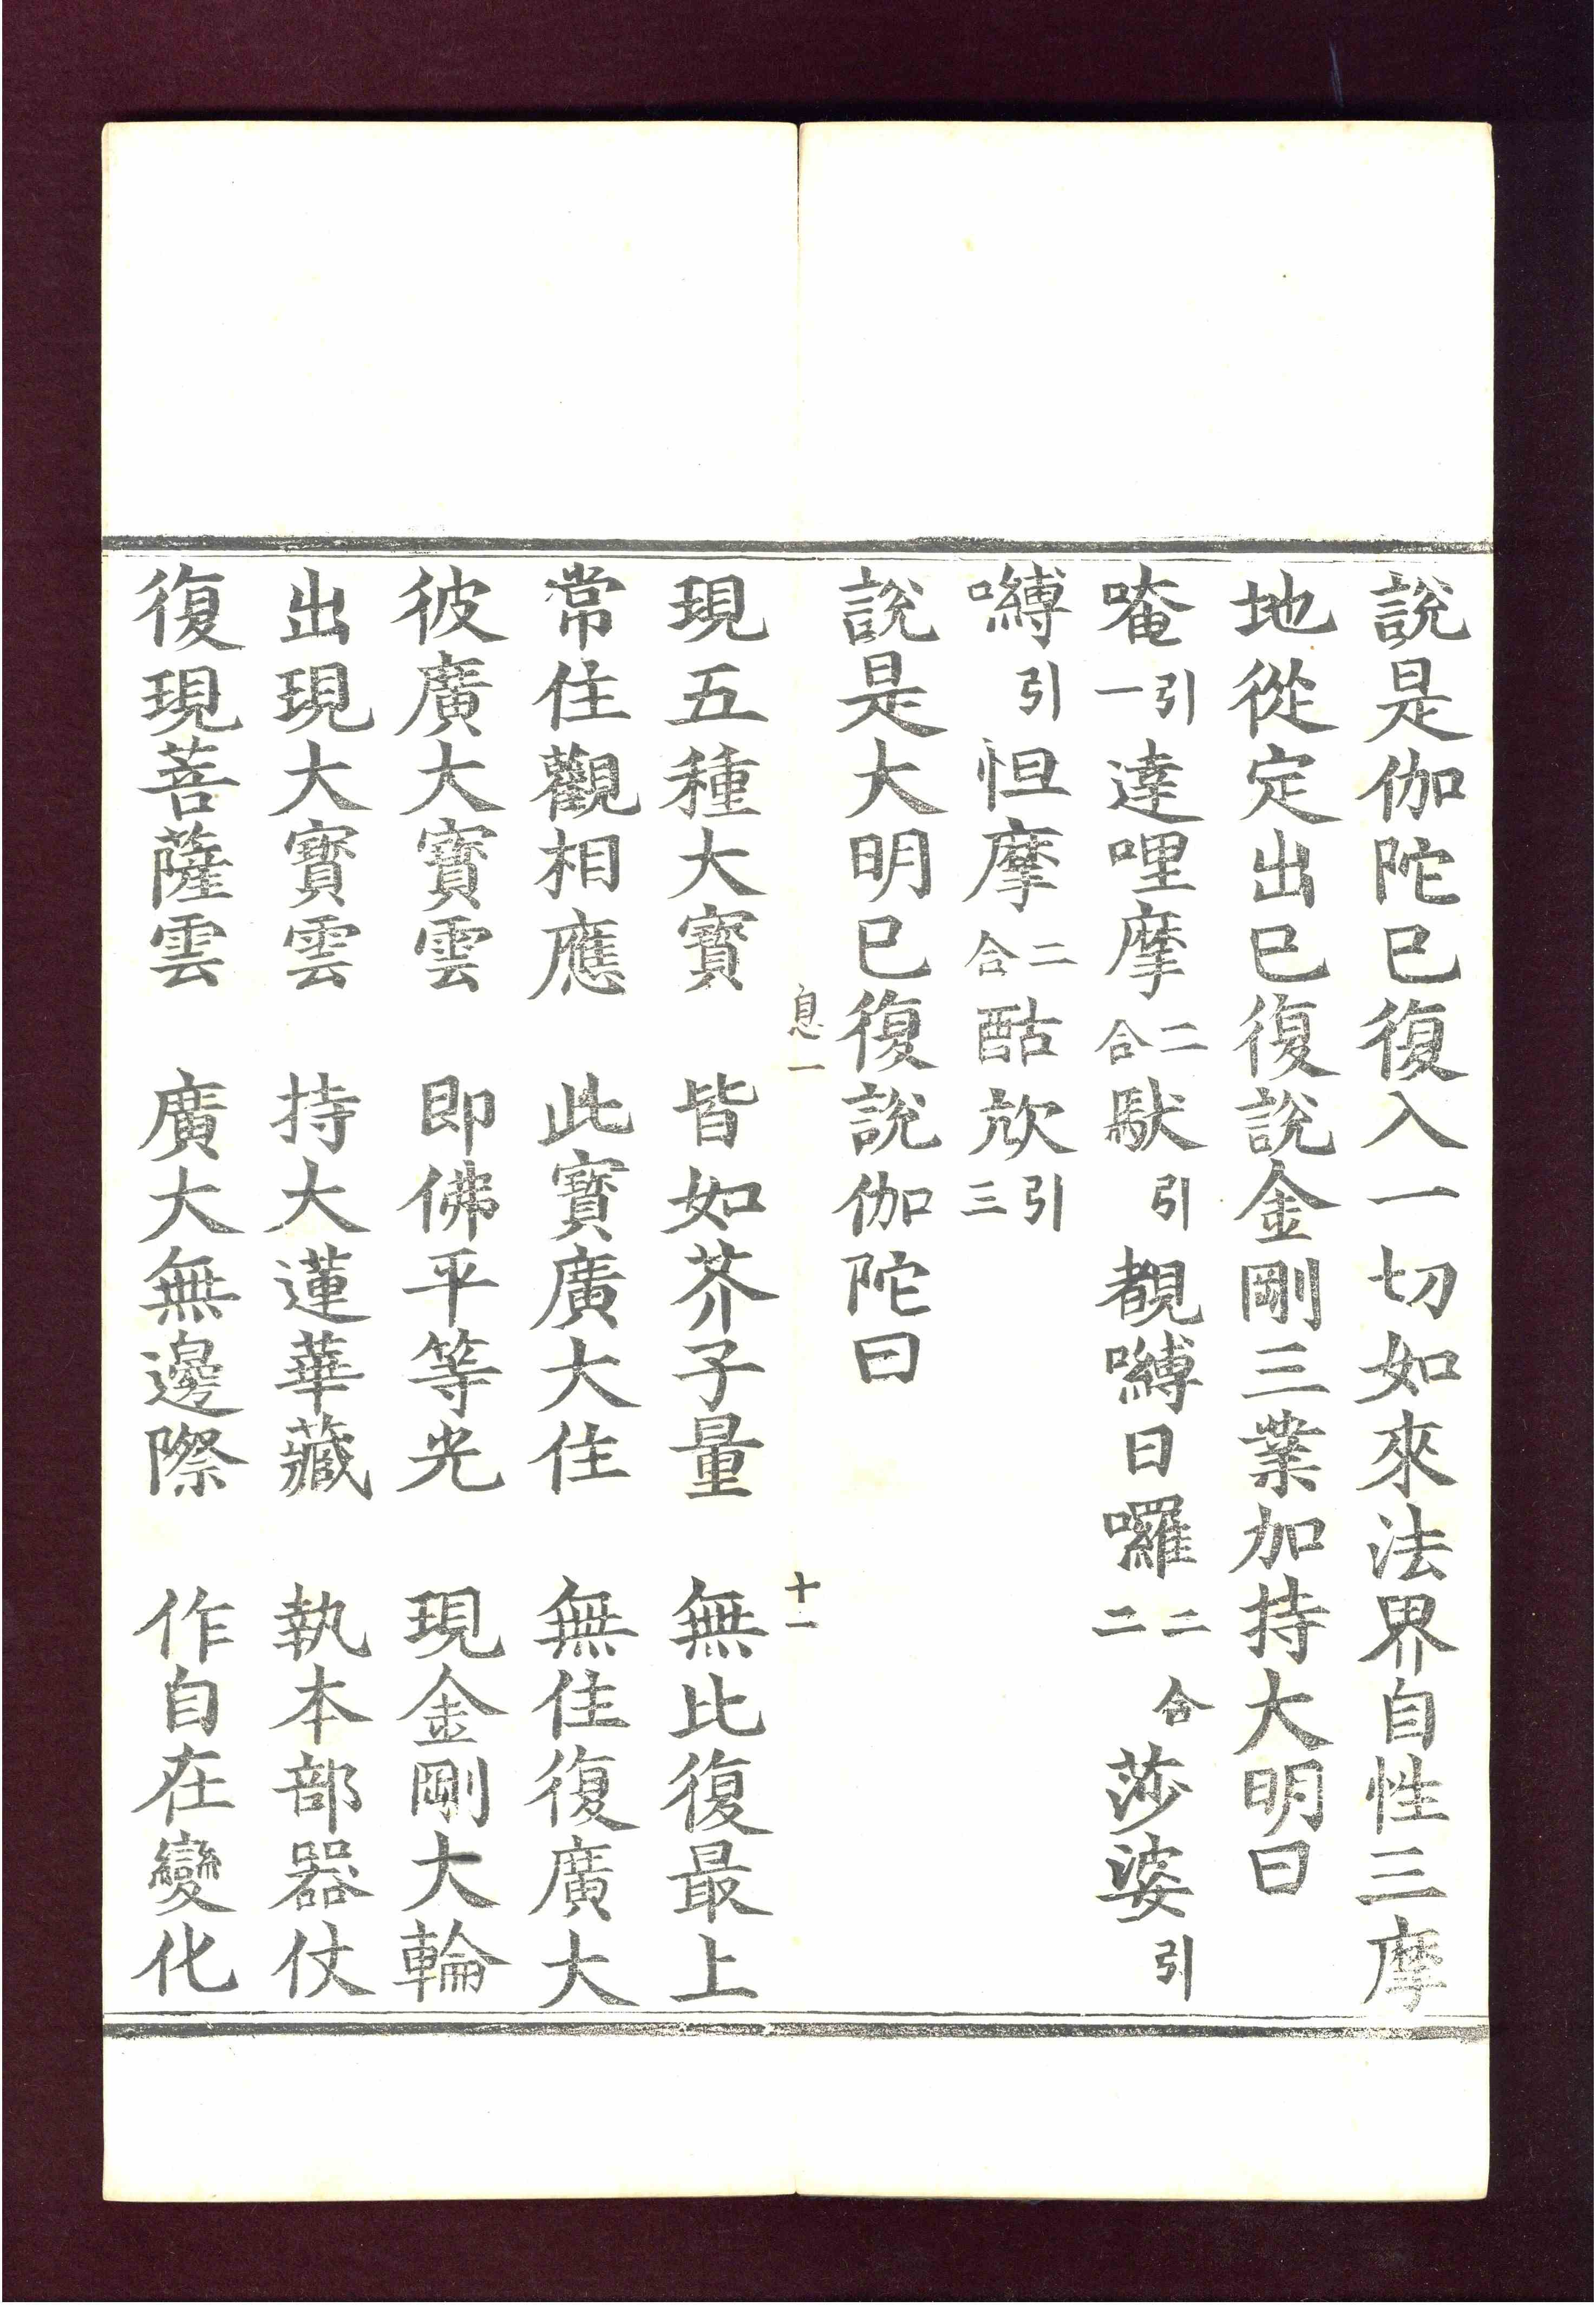 說是伽陀已復入一切如來法界自性三摩
地從定出已復說金剛三業加持大明曰
唵引一達哩摩二合馱引覩嚩日囉二合二莎婆引
嚩引怛摩二合酤㰠引三
說是大明已復說伽陀曰
息一 十一
現五種大寳 皆如芥子量 無比復最上
常住觀相應 此寳廣大住 無住復廣大
彼廣大寳雲 即佛平等光 現金剛大輪
出現大寳雲 持大蓮華藏 執本部器仗
復現菩薩雲 廣大無邊際 作自在變化